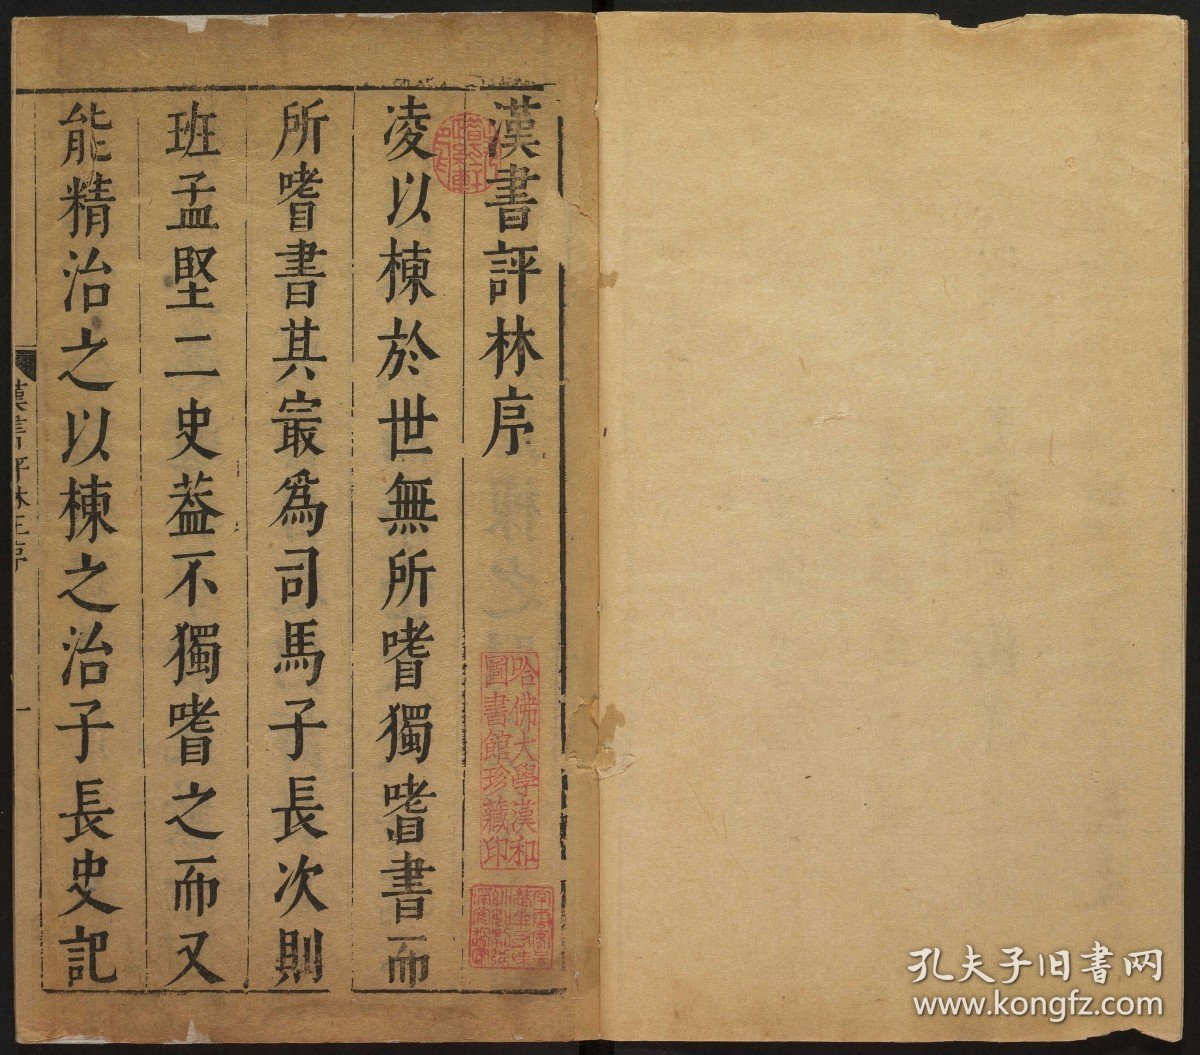 漢書評林序
凌以棟於世無所嗜獨嗜書而
所嗜書其㝡爲司馬子長次則
班孟堅二史葢不獨嗜之而又
能精治之以棟之治子長史記
漢書評林王序
一
哈佛大學漢和
圖書館珍藏印
孔夫子旧书网
www.kongfz.com